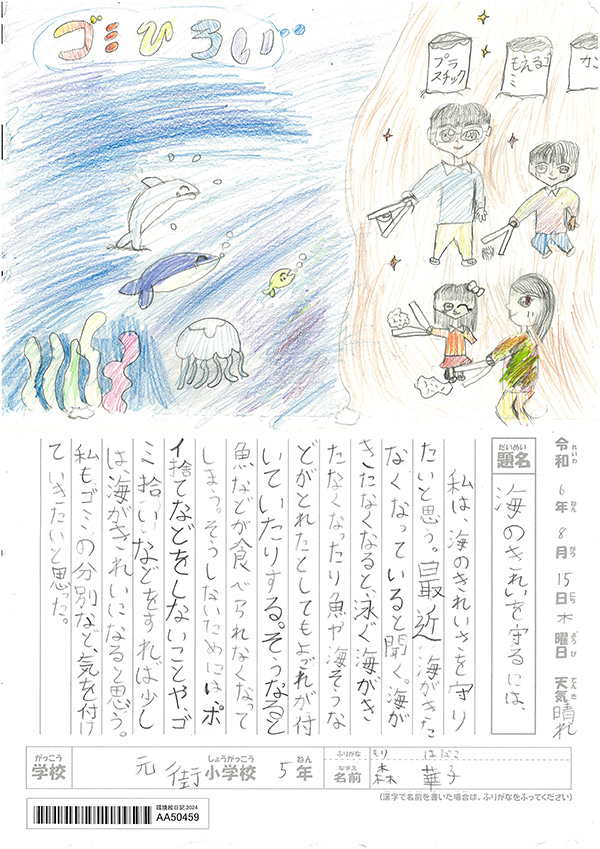 ゴミひろい
プラ
スチック
もえるゴ
ミ
カン
令和6年8月15日木曜日 天気晴れ
れいわ ねん がつ にち ようび てんき
だいめい
題名
海のきれいを守るには、
私は、海のきれいさを守り
たいと思う。最近、海がきた
なくなっていると聞く。海が
きたなくなると、泳ぐ海がき
たなくなったり魚や海そうな
どがとれたとしてもよごれが付
いていたりする。そうなると
魚などが食べられなくなって
しまう。そうしないためにはポ
イ捨てなどをしないことや、ゴ
ミ拾いなどをすれば少し
は、海がきれいになると思う。
私もゴミの分別など、気を付け
ていきたいと思った。
がっこう しょうがっこう ねん
学校 元街小学校 5年
ふりがな もり はなこ
なまえ
名前 森 華子
(漢字で名前を書いた場合は、ふりがなをふってください)
環境絵日記2024
AA50459